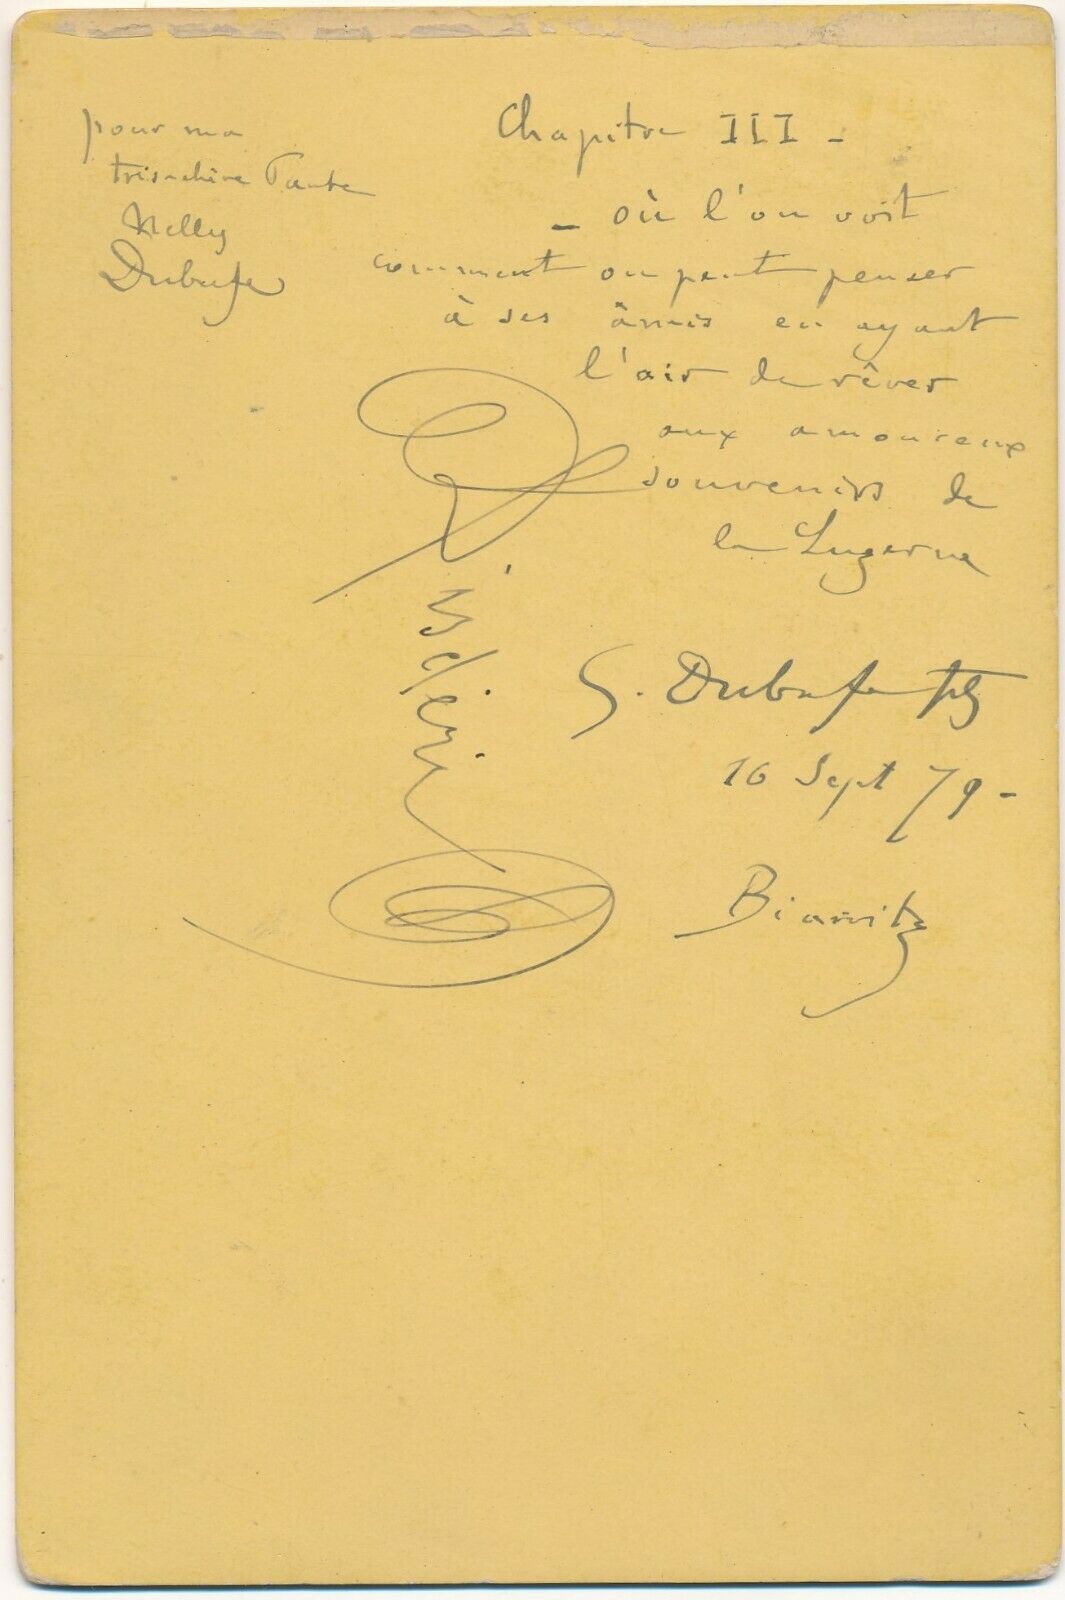 pour ma
très chère Tante
Nelly
Dubufe
Chapitre III -
- où l'on voit
comment on peut penser
à ses âmis en ayant
l'air de rêver
aux amoureux
souvenirs de
la Luzerne
G. Dubufe fils
16 Sept 79 -
Biarritz
Disdéri